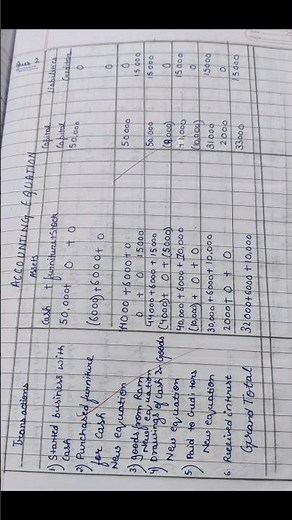 Ques 2
ACCOUNTING EQUATION
Transactions Assets Capital Liabilities
Cash + furniture + Stock Capital Creditors
1) Started business with 50,000 + 0 + 0 50,000 0
Cash
2) Purchased furniture (6000) + 6000 + 0 0
for Cash
New equation 44000 + 6000 + 0 50,000 0
3) Goods from Ram 0 + 0 15000 15000
New equation 44000 + 6000 + 15000 50,000 15000
4) Drawings of Cash & Goods (4000) + 0 + (5000) (9,000) 0
New Equation 40,000 + 6000 + 10,000 41,000 15000
5) Paid to Creditors (10000) + 0 + 0 (10,000) 0
New equation 30,000 + 6000 + 10,000 31000 15000
6 Received intrest 2000 + 0 + 0 2000 0
Grand Total 32000 + 6000 + 10,000 33000 15000